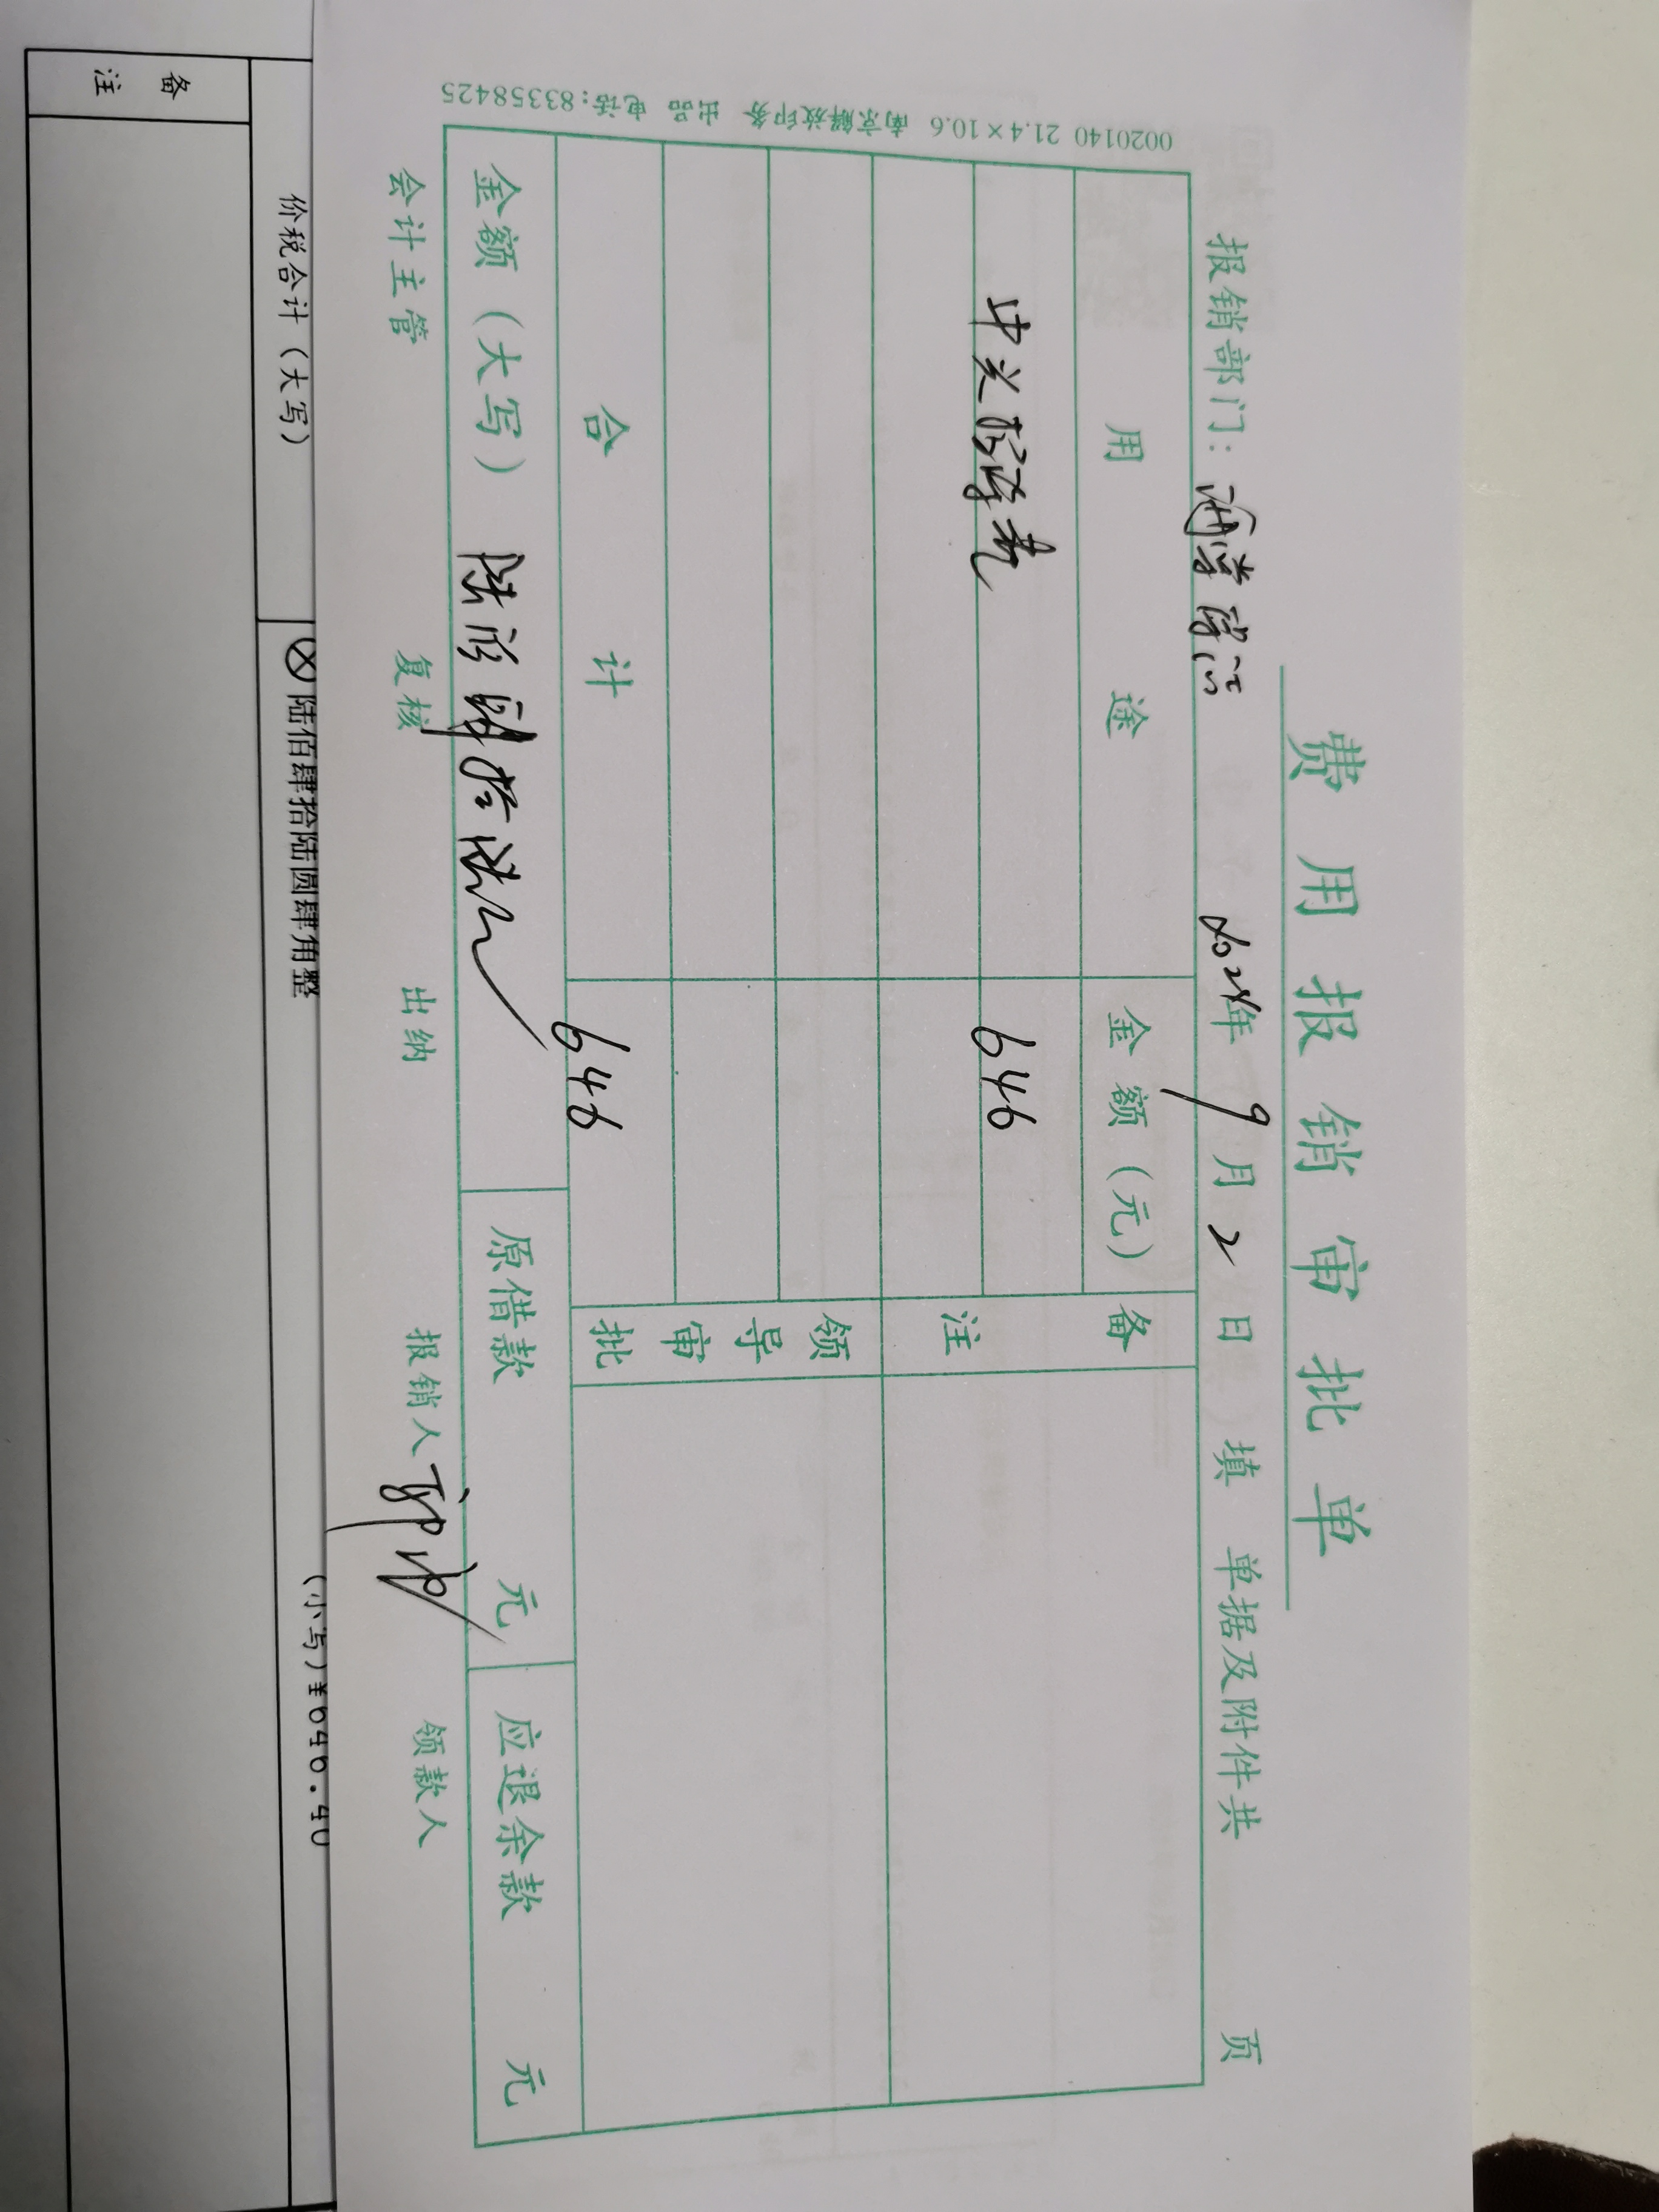 费用报销审批单
报销部门： 2024年 9 月 2 日 填 单据及附件共 页
用 途 金 额（元） 备注
中兴 646
领导审批
合 计 646
金额（大写） 陆佰肆拾陆元 原借款 元 应退余款 元
会计主管 复核 出纳 报销人 领款人
0020140 21.4×10.6 南京解放印务 出品 电话:83358425
价税合计（大写） 陆佰肆拾陆圆肆角整 （小写）¥646.40
备注